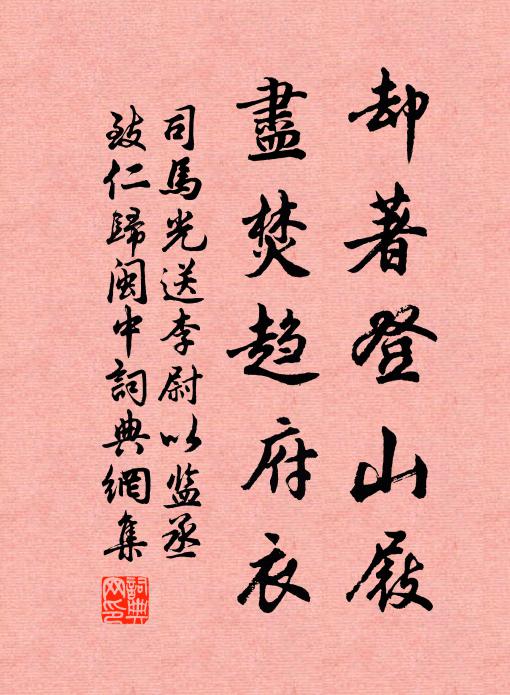 却著登山屐
盡焚趋府衣
司馬光送李尉以监丞
致仁歸閩中詞典網集
詞典網印